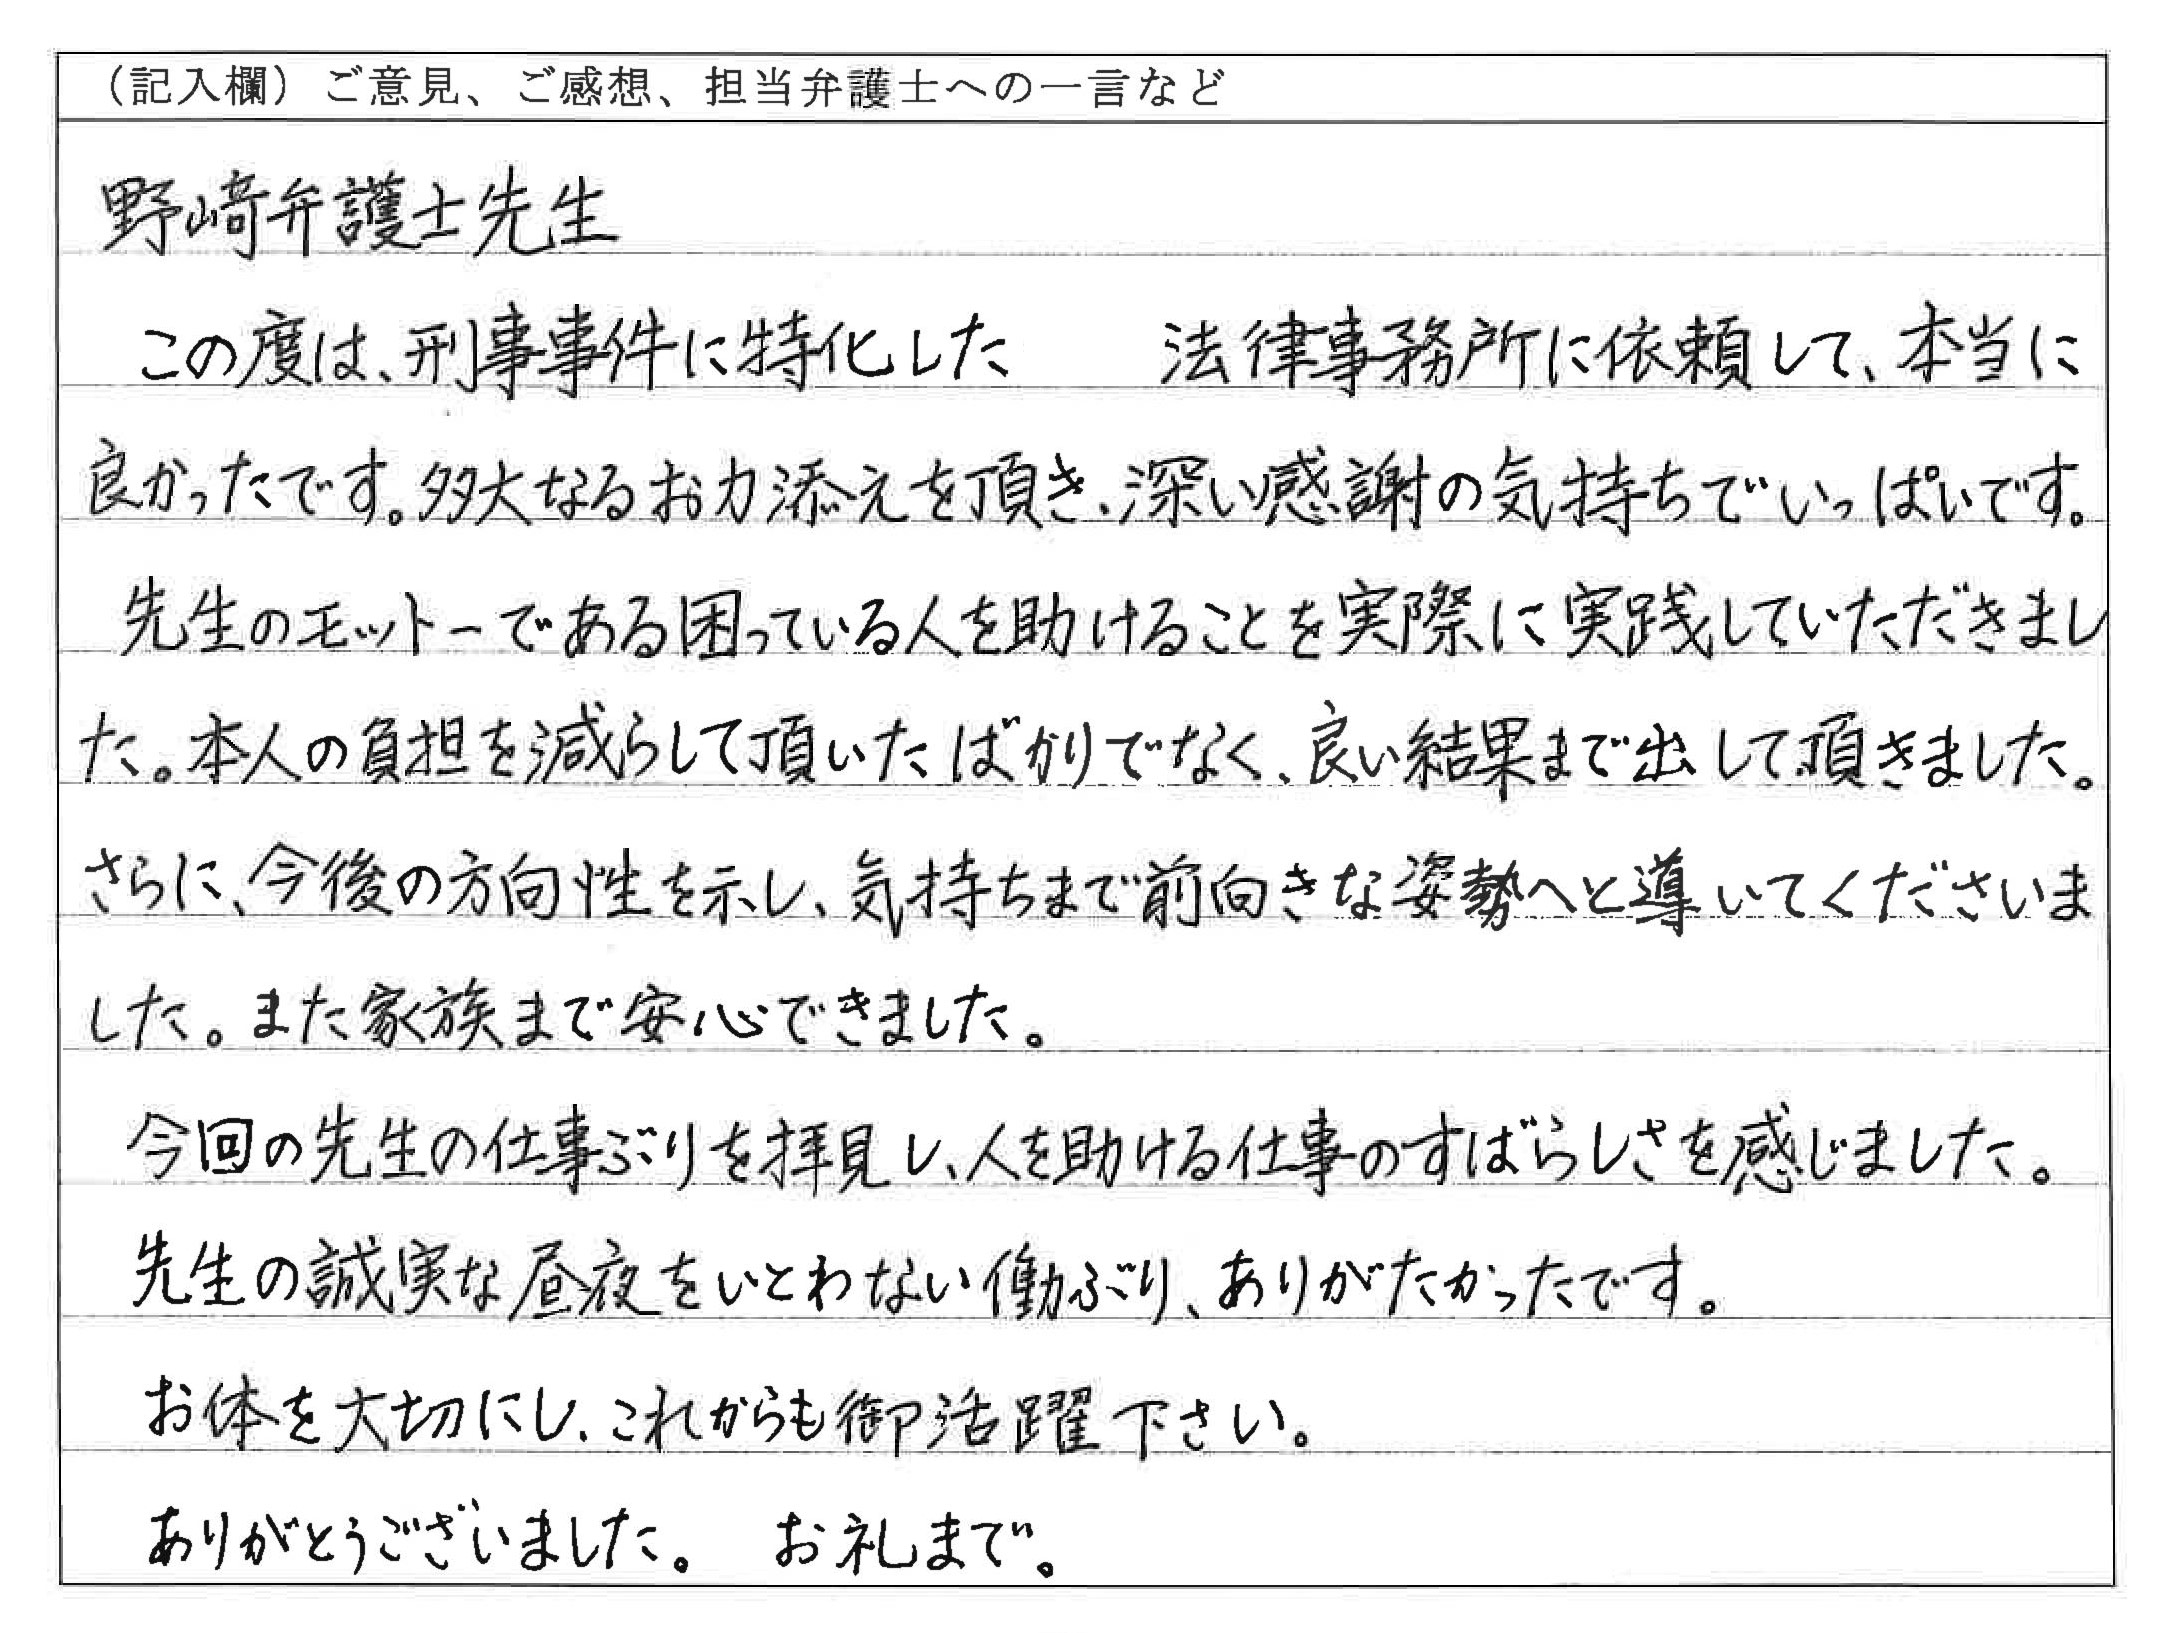 （記入欄）ご意見、ご感想、担当弁護士への一言など
野崎弁護士先生
この度は、刑事事件に特化した　　法律事務所に依頼して、本当に
良かったです。多大なるお力添えを頂き、深い感謝の気持ちでいっぱいです。
先生のモットーである困っている人を助けることを実際に実践していただきまし
た。本人の負担を減らして頂いたばかりでなく、良い結果まで出して頂きました。
さらに、今後の方向性を示し、気持ちまで前向きな姿勢へと導いてくださいま
した。また家族まで安心できました。
今回の先生の仕事ぶりを拝見し、人を助ける仕事のすばらしさを感じました。
先生の誠実な昼夜をいとわない働ぶり、ありがたかったです。
お体を大切にし、これからも御活躍下さい。
ありがとうございました。　お礼まで。